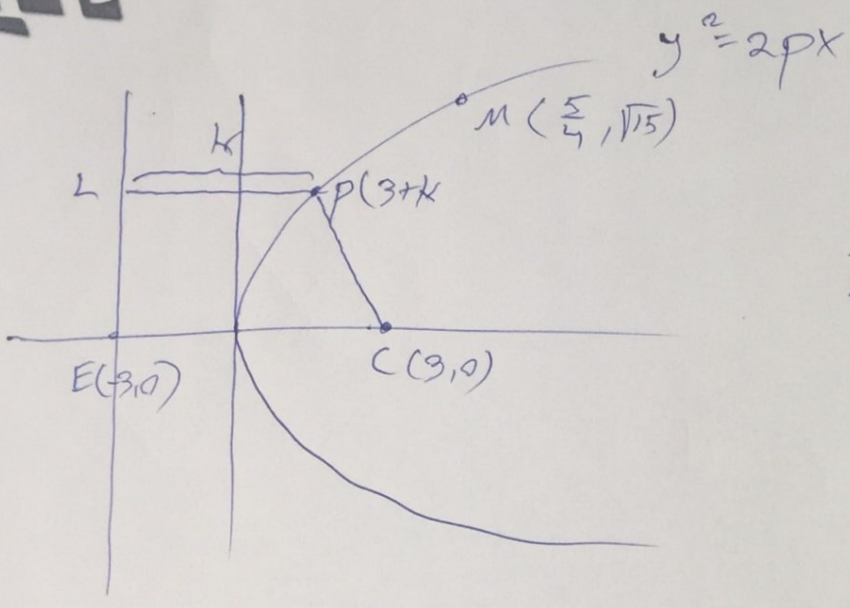 y² = 2px
M (5/4, √15)
K
L
P(3+k
E(-3,0)
C (3,0)